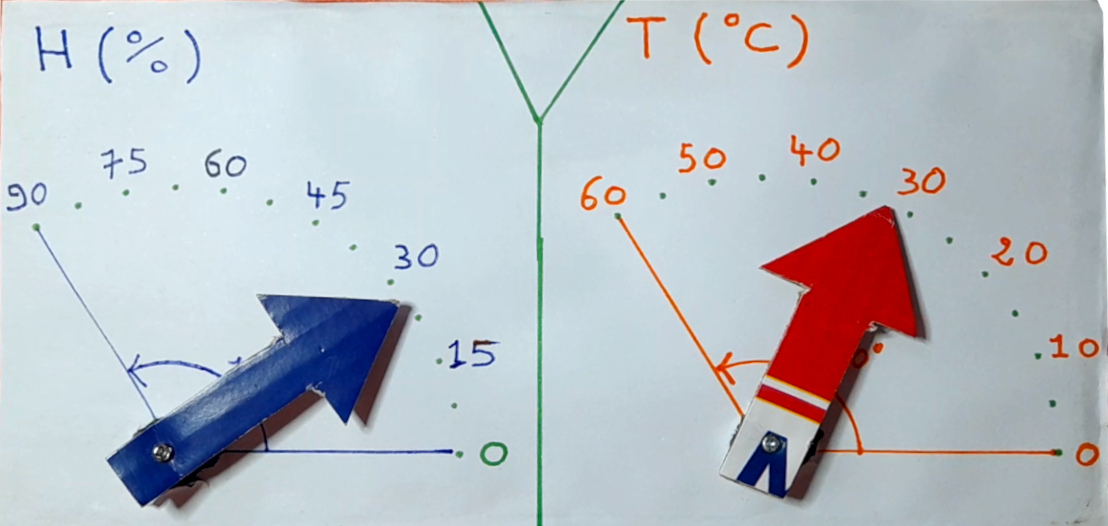 H (%)
T (°C)
90
75
60
45
30
15
0
60
50
40
30
20
10
0
0°